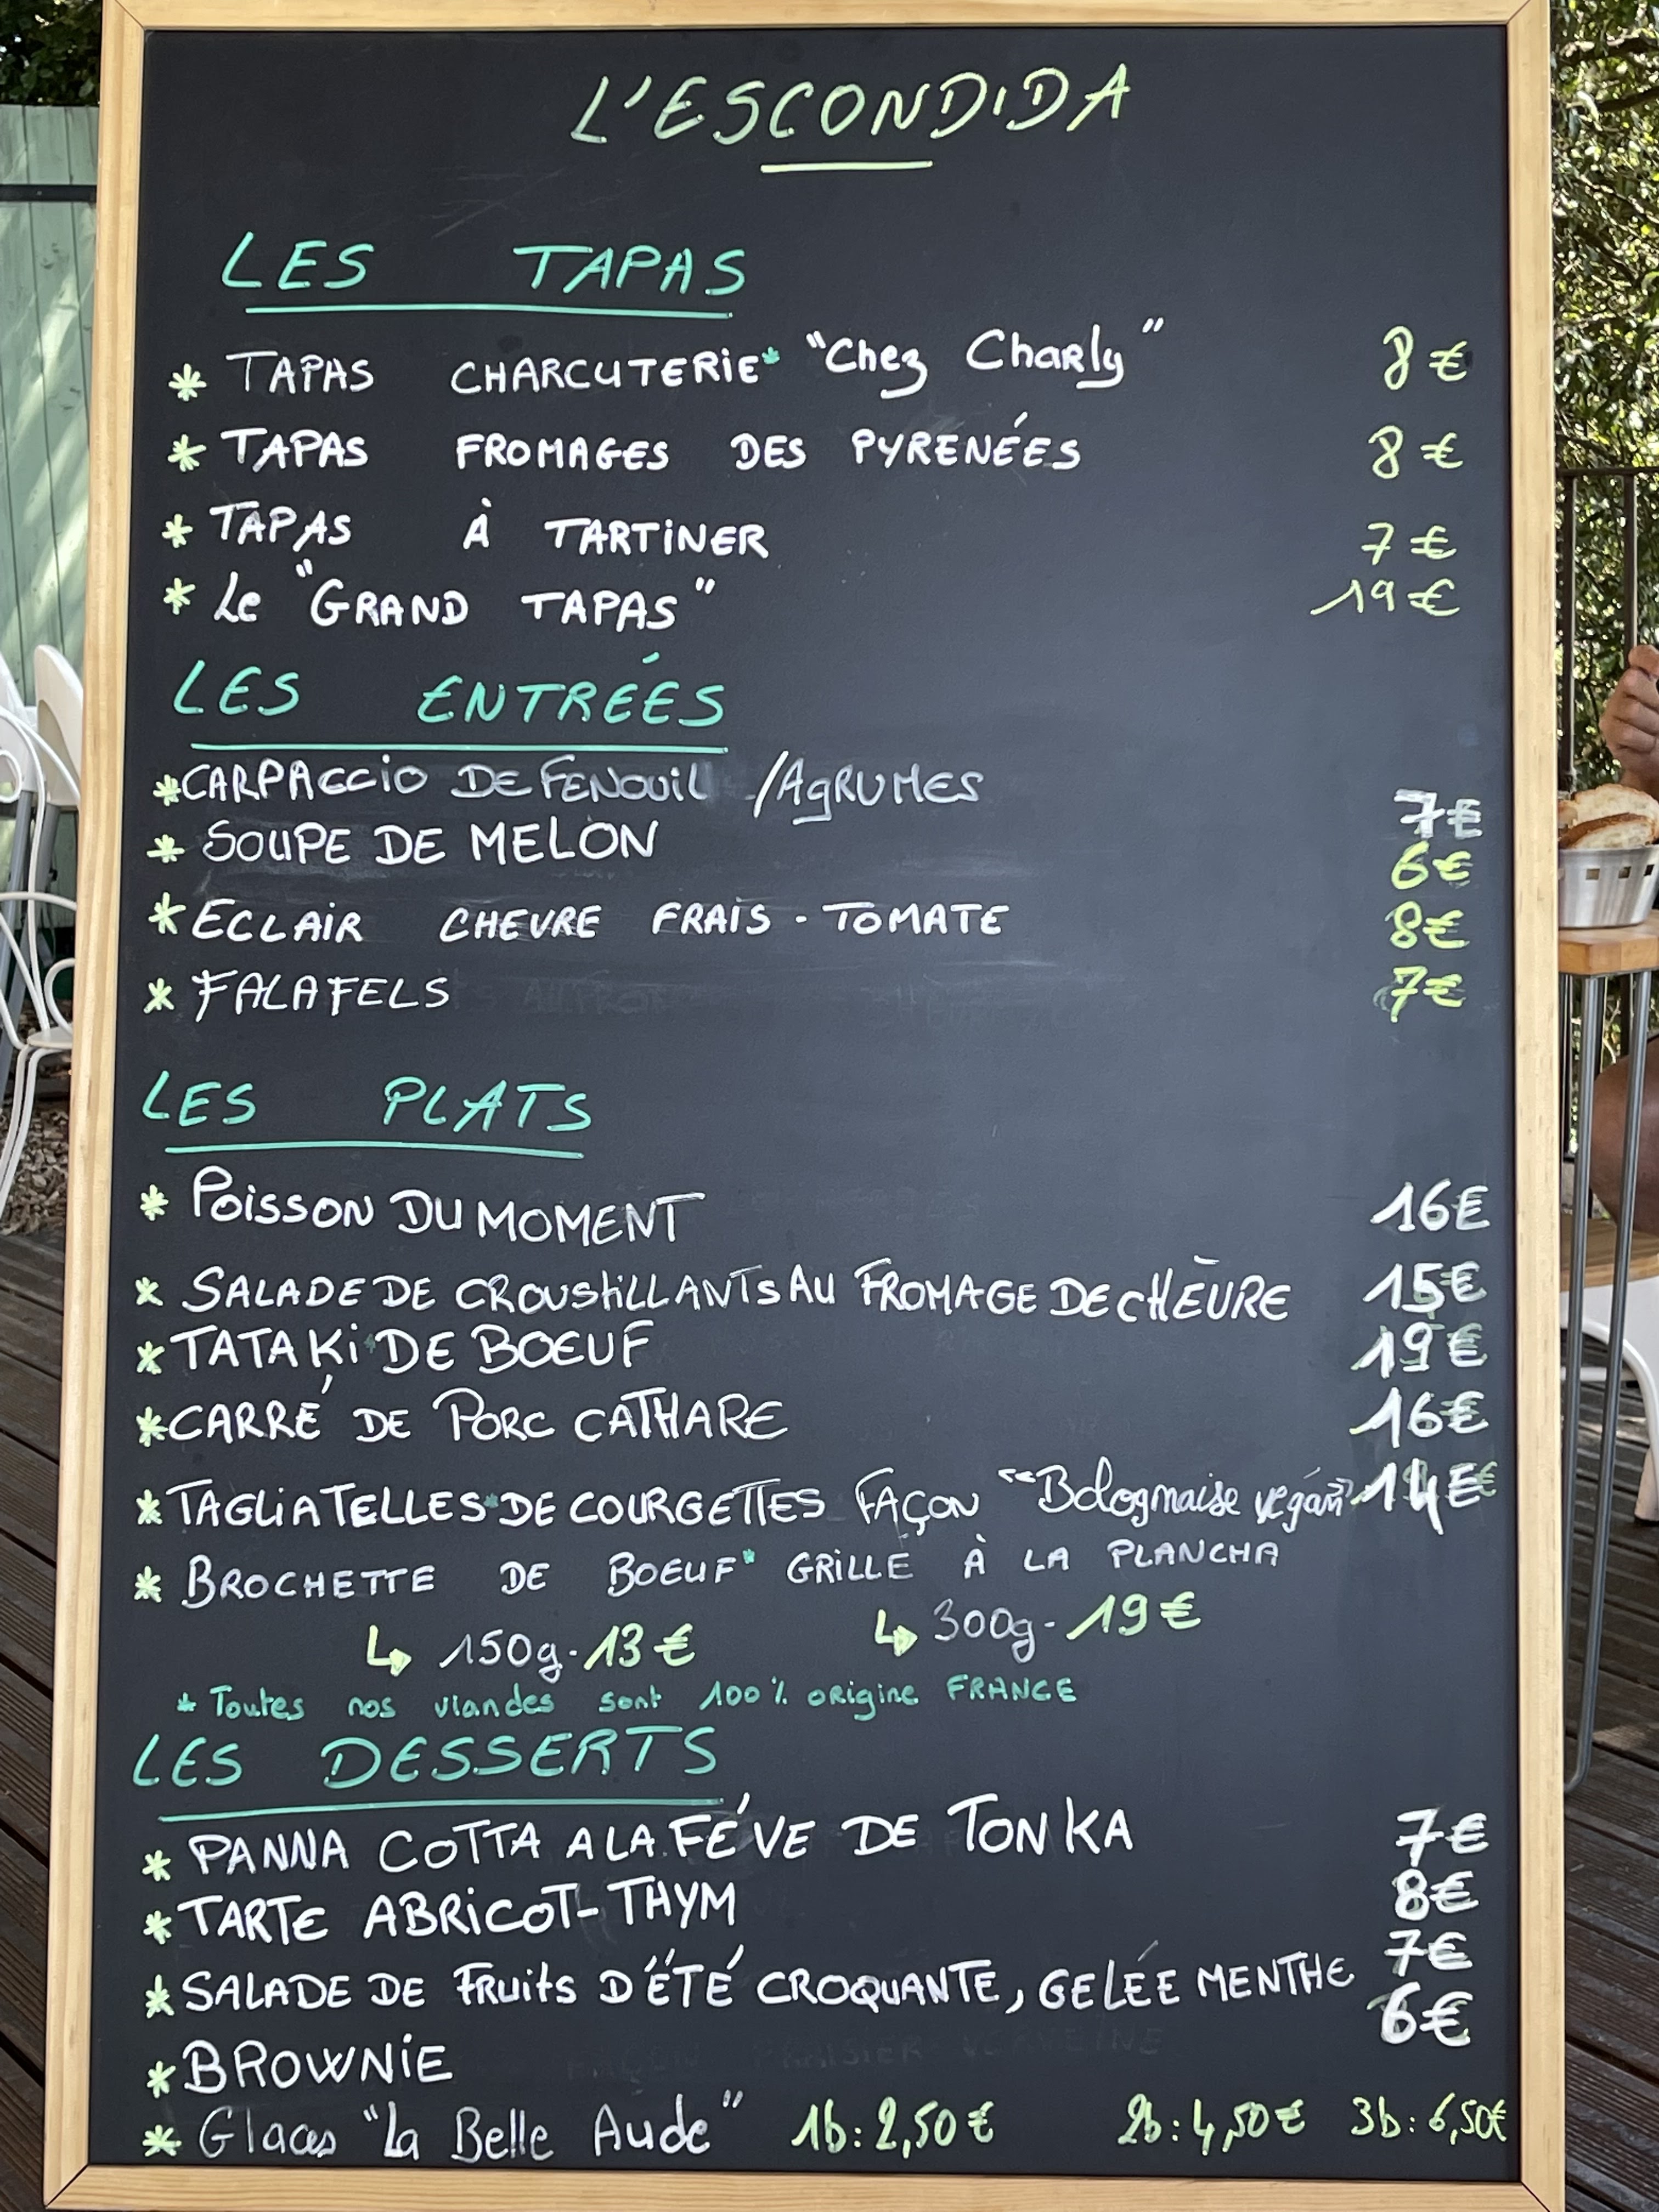 L'ESCONDIDA
LES TAPAS
* TAPAS CHARCUTERIE* "Chez Charly" 8€
* TAPAS FROMAGES DES PYRENÉES 8€
* TAPAS À TARTINER 7€
* Le "GRAND TAPAS" 19€
LES ENTRÉES
* CARPACCIO DE FENOUIL / AGRUMES 7€
* SOUPE DE MELON 6€
* ECLAIR CHEVRE FRAIS - TOMATE 8€
* FALAFELS 7€
LES PLATS
* POISSON DU MOMENT 16€
* SALADE DE CROUSTILLANTS AU FROMAGE DE CHÈVRE 15€
* TATAKI* DE BOEUF 19€
* CARRÉ DE PORC CATHARE 16€
* TAGLIATELLES* DE COURGETTES FAÇON "Bolognaise végan" 14€
* BROCHETTE DE BOEUF* GRILLÉ À LA PLANCHA
↳ 150g - 13€ ↳ 300g - 19€
* Toutes nos viandes sont 100% origine FRANCE
LES DESSERTS
* PANNA COTTA A LA FÉVE DE TONKA 7€
* TARTE ABRICOT-THYM 8€
* SALADE DE FRUITS D'ÉTÉ CROQUANTE, GELÉE MENTHE 7€
* BROWNIE 6€
* Glaces "La Belle Aude" 1b: 2,50€ 2b: 4,50€ 3b: 6,50€